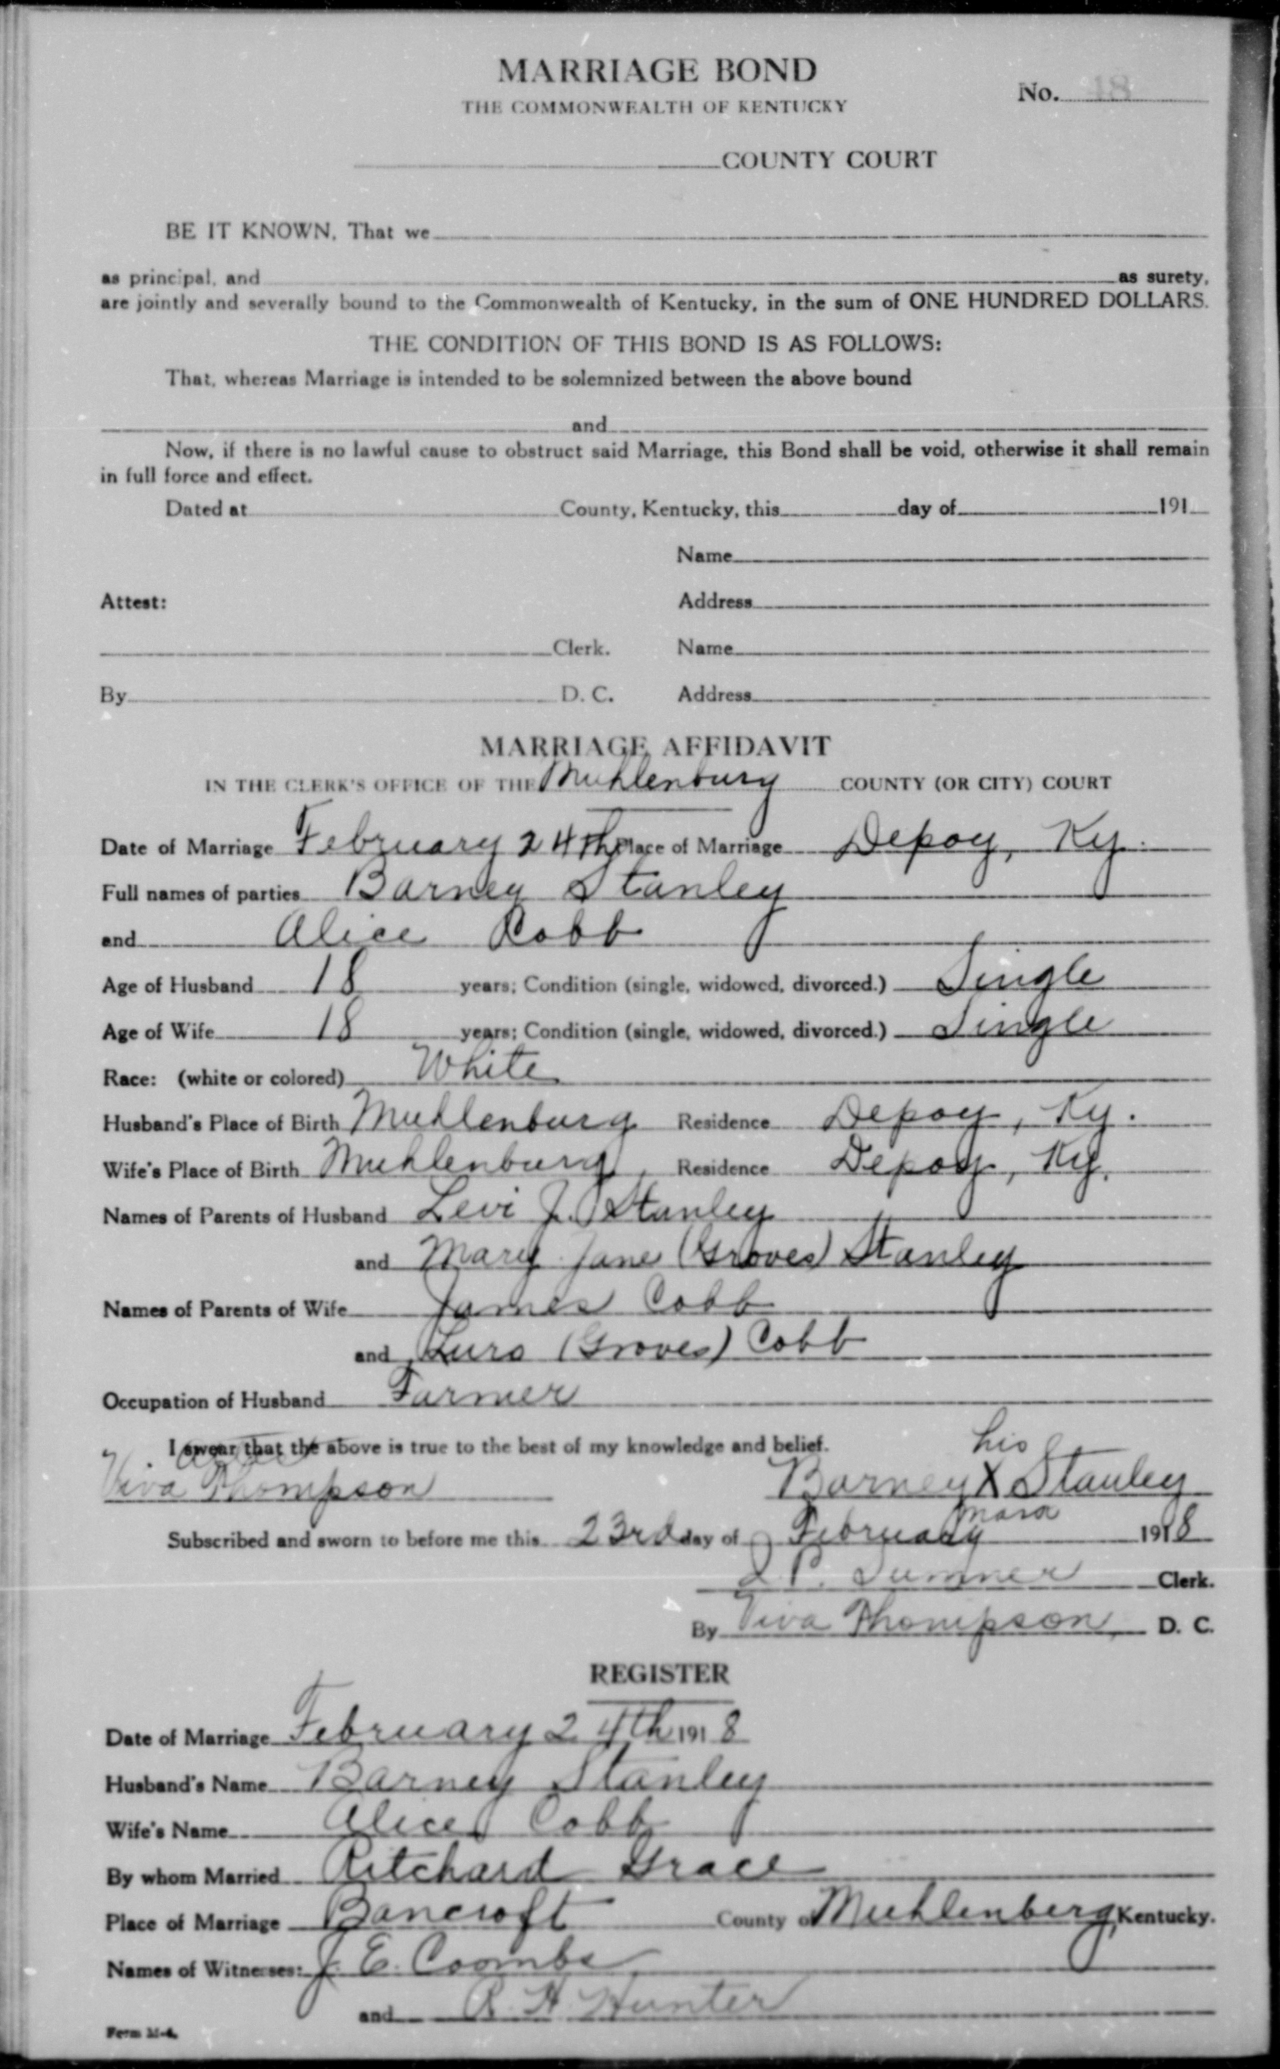 MARRIAGE BOND
No. 18
THE COMMONWEALTH OF KENTUCKY
COUNTY COURT
BE IT KNOWN, That we
as principal, and as surety,
are jointly and severally bound to the Commonwealth of Kentucky, in the sum of ONE HUNDRED DOLLARS.
THE CONDITION OF THIS BOND IS AS FOLLOWS:
That, whereas Marriage is intended to be solemnized between the above bound
and
Now, if there is no lawful cause to obstruct said Marriage, this Bond shall be void, otherwise it shall remain
in full force and effect.
Dated at County, Kentucky, this day of 191
Name
Attest: Address
Clerk. Name
By D. C. Address
MARRIAGE AFFIDAVIT
IN THE CLERK'S OFFICE OF THE Muhlenburg COUNTY (OR CITY) COURT
Date of Marriage February 24th Place of Marriage Depoy, Ky.
Full names of parties Barney Stanley
and Alice Cobb
Age of Husband 18 years; Condition (single, widowed, divorced.) Single
Age of Wife 18 years; Condition (single, widowed, divorced.) Single
Race: (white or colored) White
Husband's Place of Birth Muhlenburg Residence Depoy, Ky.
Wife's Place of Birth Muhlenburg, Residence Depoy, Ky.
Names of Parents of Husband Levi J. Stanley
and Mary Jane (Groves) Stanley
Names of Parents of Wife James Cobb
and Lura (Groves) Cobb
Occupation of Husband Farmer
I swear that the above is true to the best of my knowledge and belief. his
Attest
Viva Thompson Barney X Stanley
mark
Subscribed and sworn to before me this 23rd day of February 1918
J. P. Sumner Clerk.
By Viva Thompson, D. C.
REGISTER
Date of Marriage February 24th 1918
Husband's Name Barney Stanley
Wife's Name Alice Cobb
By whom Married Ritchard Grace
Place of Marriage Bancroft County of Muhlenberg, Kentucky.
Names of Witnesses: J. E. Coombs
and R. H. Hunter
Form M-4.